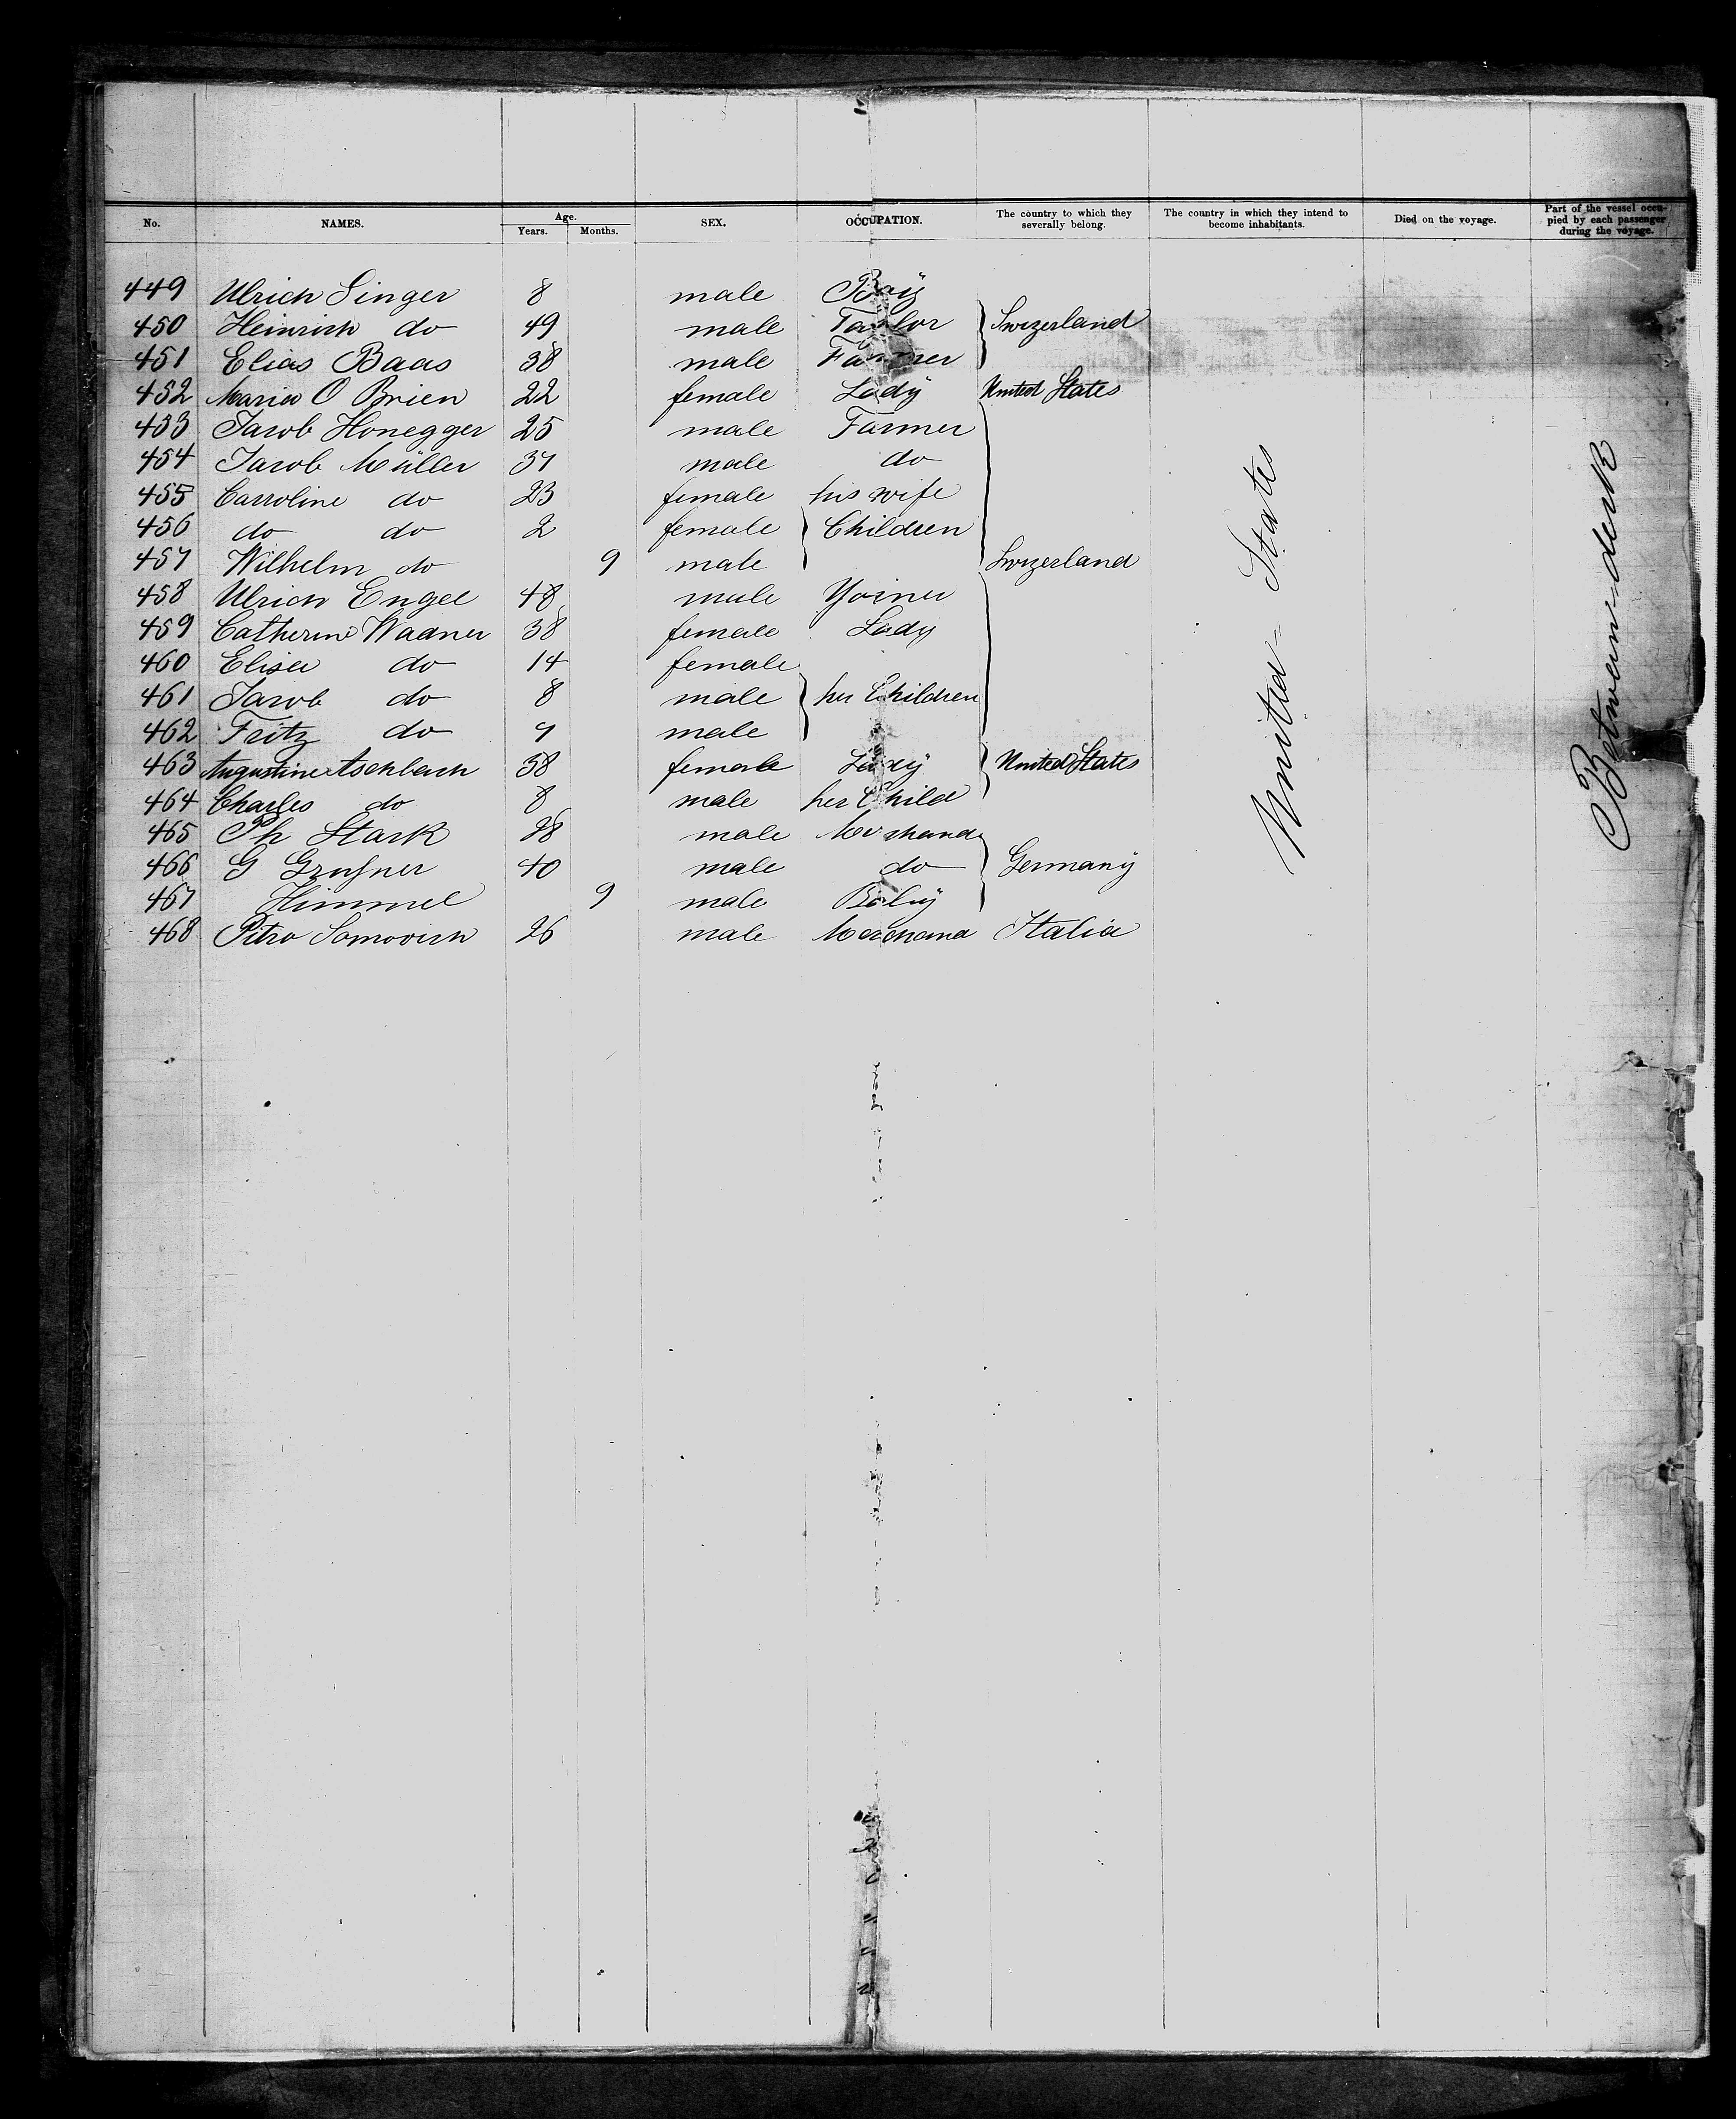 No. NAMES. Age. Years. Months. SEX. OCCUPATION. The country to which they severally belong. The country in which they intend to become inhabitants. Died on the voyage. Part of the vessel occupied by each passenger during the voyage.
449 Ulrich Singer 8 male Boy
450 Heinrich do 49 male Taylor Swizerland
451 Elias Baas 38 male Farmer
452 Maria O Brien 22 female Lady United States
453 Jacob Honegger 25 male Farmer
454 Jacob Müller 37 male do
455 Carroline do 23 female his wife
456 do do 2 female Children
457 Wilhelm do 9 male Swizerland
458 Ulrich Engel 48 male Yoiner
459 Catherine Wadner 38 female Lady
460 Elisa do 14 female
461 Jacob do 8 male her Children
462 Fritz do 7 male
463 Augustine Aschbach 38 female Lady United States
464 Charles do 8 male her Child
465 Ph Stark 28 male Merchand
466 G male do Germany
40
467 Himmel 9 male Baby
468 Pitro Samovich 26 male Merchand Italia
United States
Between deck